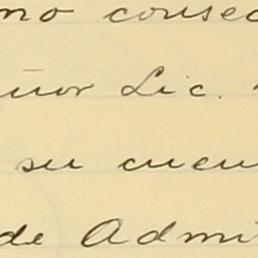 mo consec
eñor Lic.
su cuen
de Admi